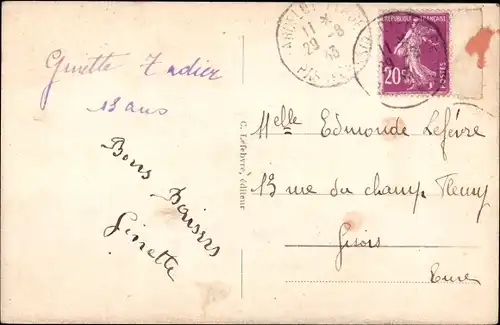 Ginette Tadier
13 ans
Bons Baisers
Ginette
C. Lefebvre, éditeur
11 *
29 - 8
33
REPUBLIQUE FRANÇAISE
20c
POSTES
Melle Edmonde Lefévre
13 rue du champ Fleury
Gisors
Eure